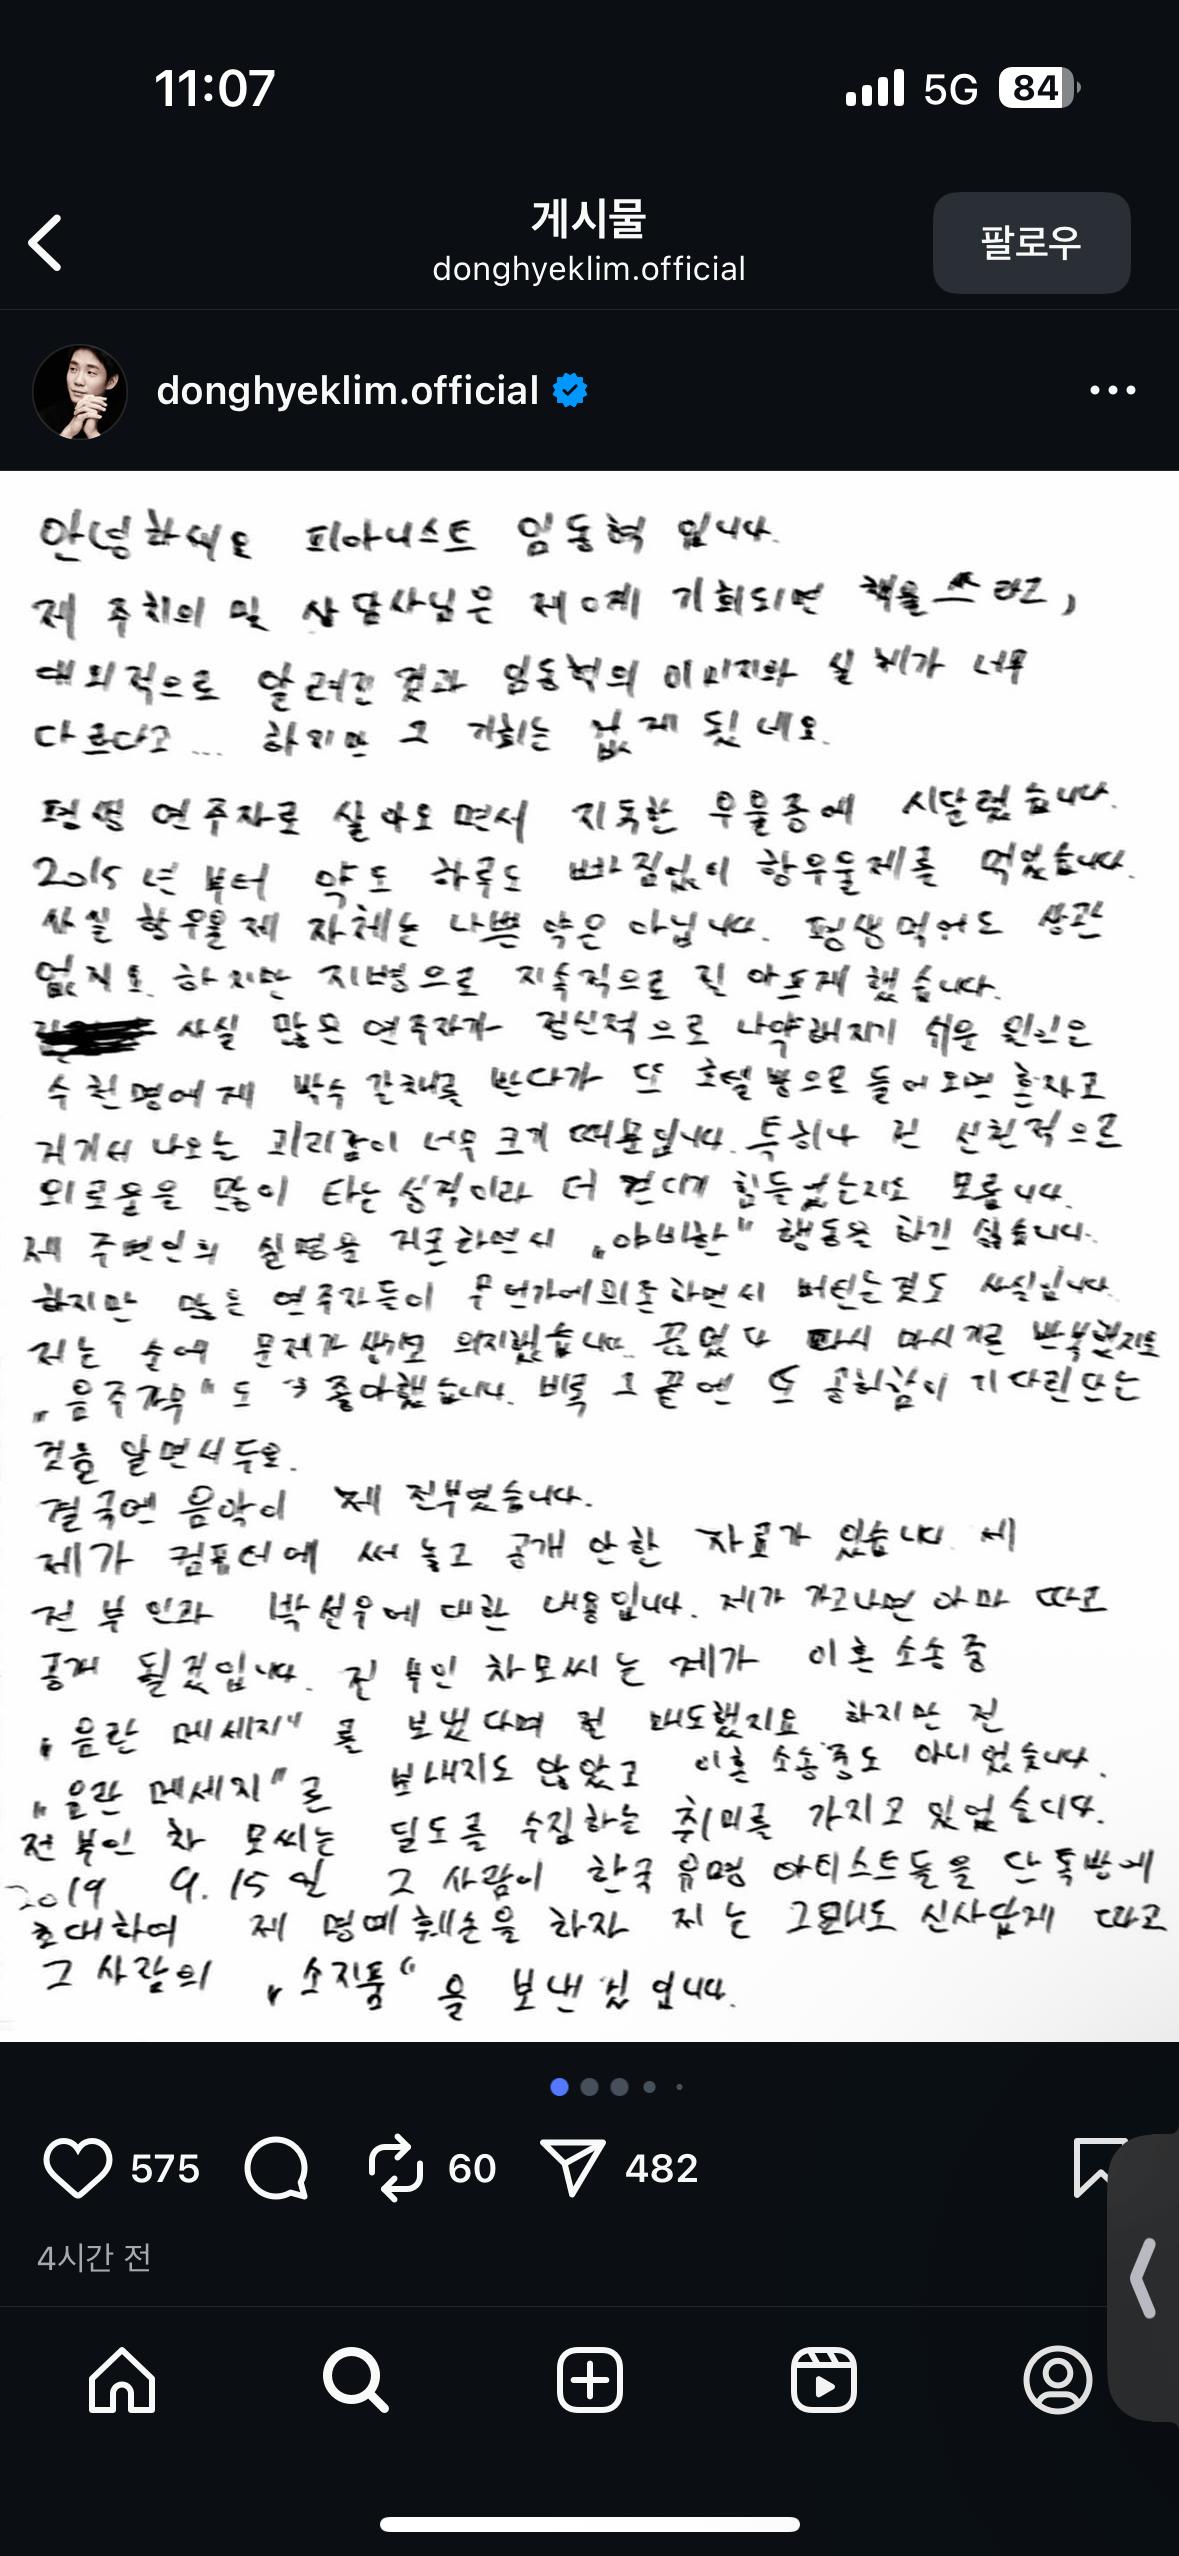 11:07
5G
84
게시물
donghyeklim.official
팔로우
donghyeklim.official
안녕하세요 피아니스트 임동혁 입니다.
제 주치의 및 상담사님은 제에게 기회되면 책을 쓰라고,
대외적으로 알려진 것과 임동혁의 이미지와 실체가 너무
다르다고... 하지만 그 기회는 없게 됬네요.
평생 연주자로 살아오면서 지독한 우울증에 시달렸습니다.
2015년부터 약도 하루도 빠짐없이 항우울제를 먹었습니다.
사실 항우울제 자체는 나쁜 약은 아닙니다. 평생먹어도 상관
없지요. 하지만 지병으로 지속적으로 절 아프게 했습니다.
사실 많은 연주자가 정신적으로 나약해지기 쉬운 원인은
수천명에게 박수 갈채를 받다가 또 호텔방으로 들어오면 혼자고
거기서 나오는 괴리감이 너무 크기 때문입니다. 특히나 전 선천적으로
외로움을 많이 타는 성격이라 더 견디기 힘들었는지도 모릅니다.
제 주변인의 실명을 거론하면서 „야비한" 행동은 하긴 싫습니다.
하지만 많은 연주자들이 무언가에 의존하면서 버틴는것도 사실입니다.
저는 술에 문제가 생기며 의지했습니다. 끊었다 다시 마시기를 반복했지요
„음주가무"도 좋아했습니다. 비록 그 끝엔 또 공허함이 기다린다는
것을 알면서두요.
결국엔 음악이 제 전부였습니다.
제가 컴퓨터에 써 놓고 공개 안한 자료가 있습니다. 제
전 부인과 박선우에 대한 내용입니다. 제가 가고나면 아마 따로
공개 될것입니다. 전 부인 차모씨는 제가 이혼 소송 중
„음란 메세지" 를 보냈다며 절 매도했지요 하지만 전
„음란 메세지"를 보내지도 않았고 이혼 소송중도 아니었습니다.
전 부인 차 모씨는 딜도를 수집하는 취미를 가지고 있었습니다.
2019 9. 15일 그 사람이 한국 유명 아티스트들을 단톡방에
초대하여 제 명예훼손을 하자 저는 그때도 신사답게 따로
그 사람의 „소지품" 을 보낸것 입니다.
575
60
482
4시간 전